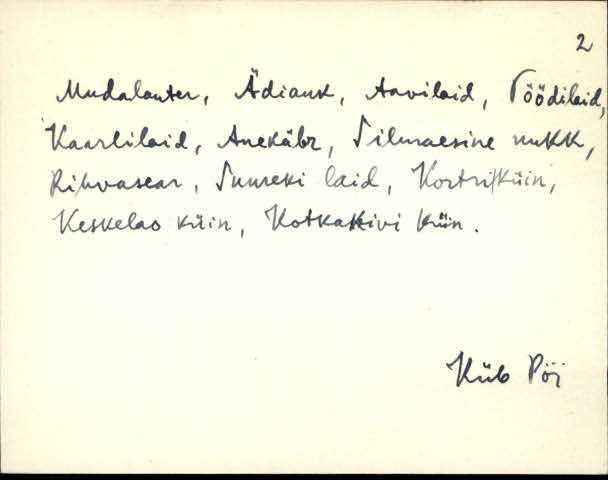 2
Mudalauter, Ädiauk, Aavilaid, Pöödilaid,
Kaarlilaid, Anekäbr, Silmaesine nukk,
Rihvasear, Suureki laid, Kortriküin,
Keskelao küin, Kotkakivi küin.
Küb Pöi